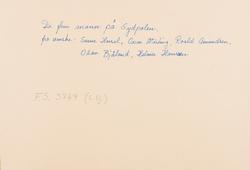 De fem menn på Sydpolen,
fra venstre: Sverre Hassel, Oscar Wisting, Roald Amundsen,
Olav Bjåland, Helmer Hanssen
F.S. 3749 (e.g.)